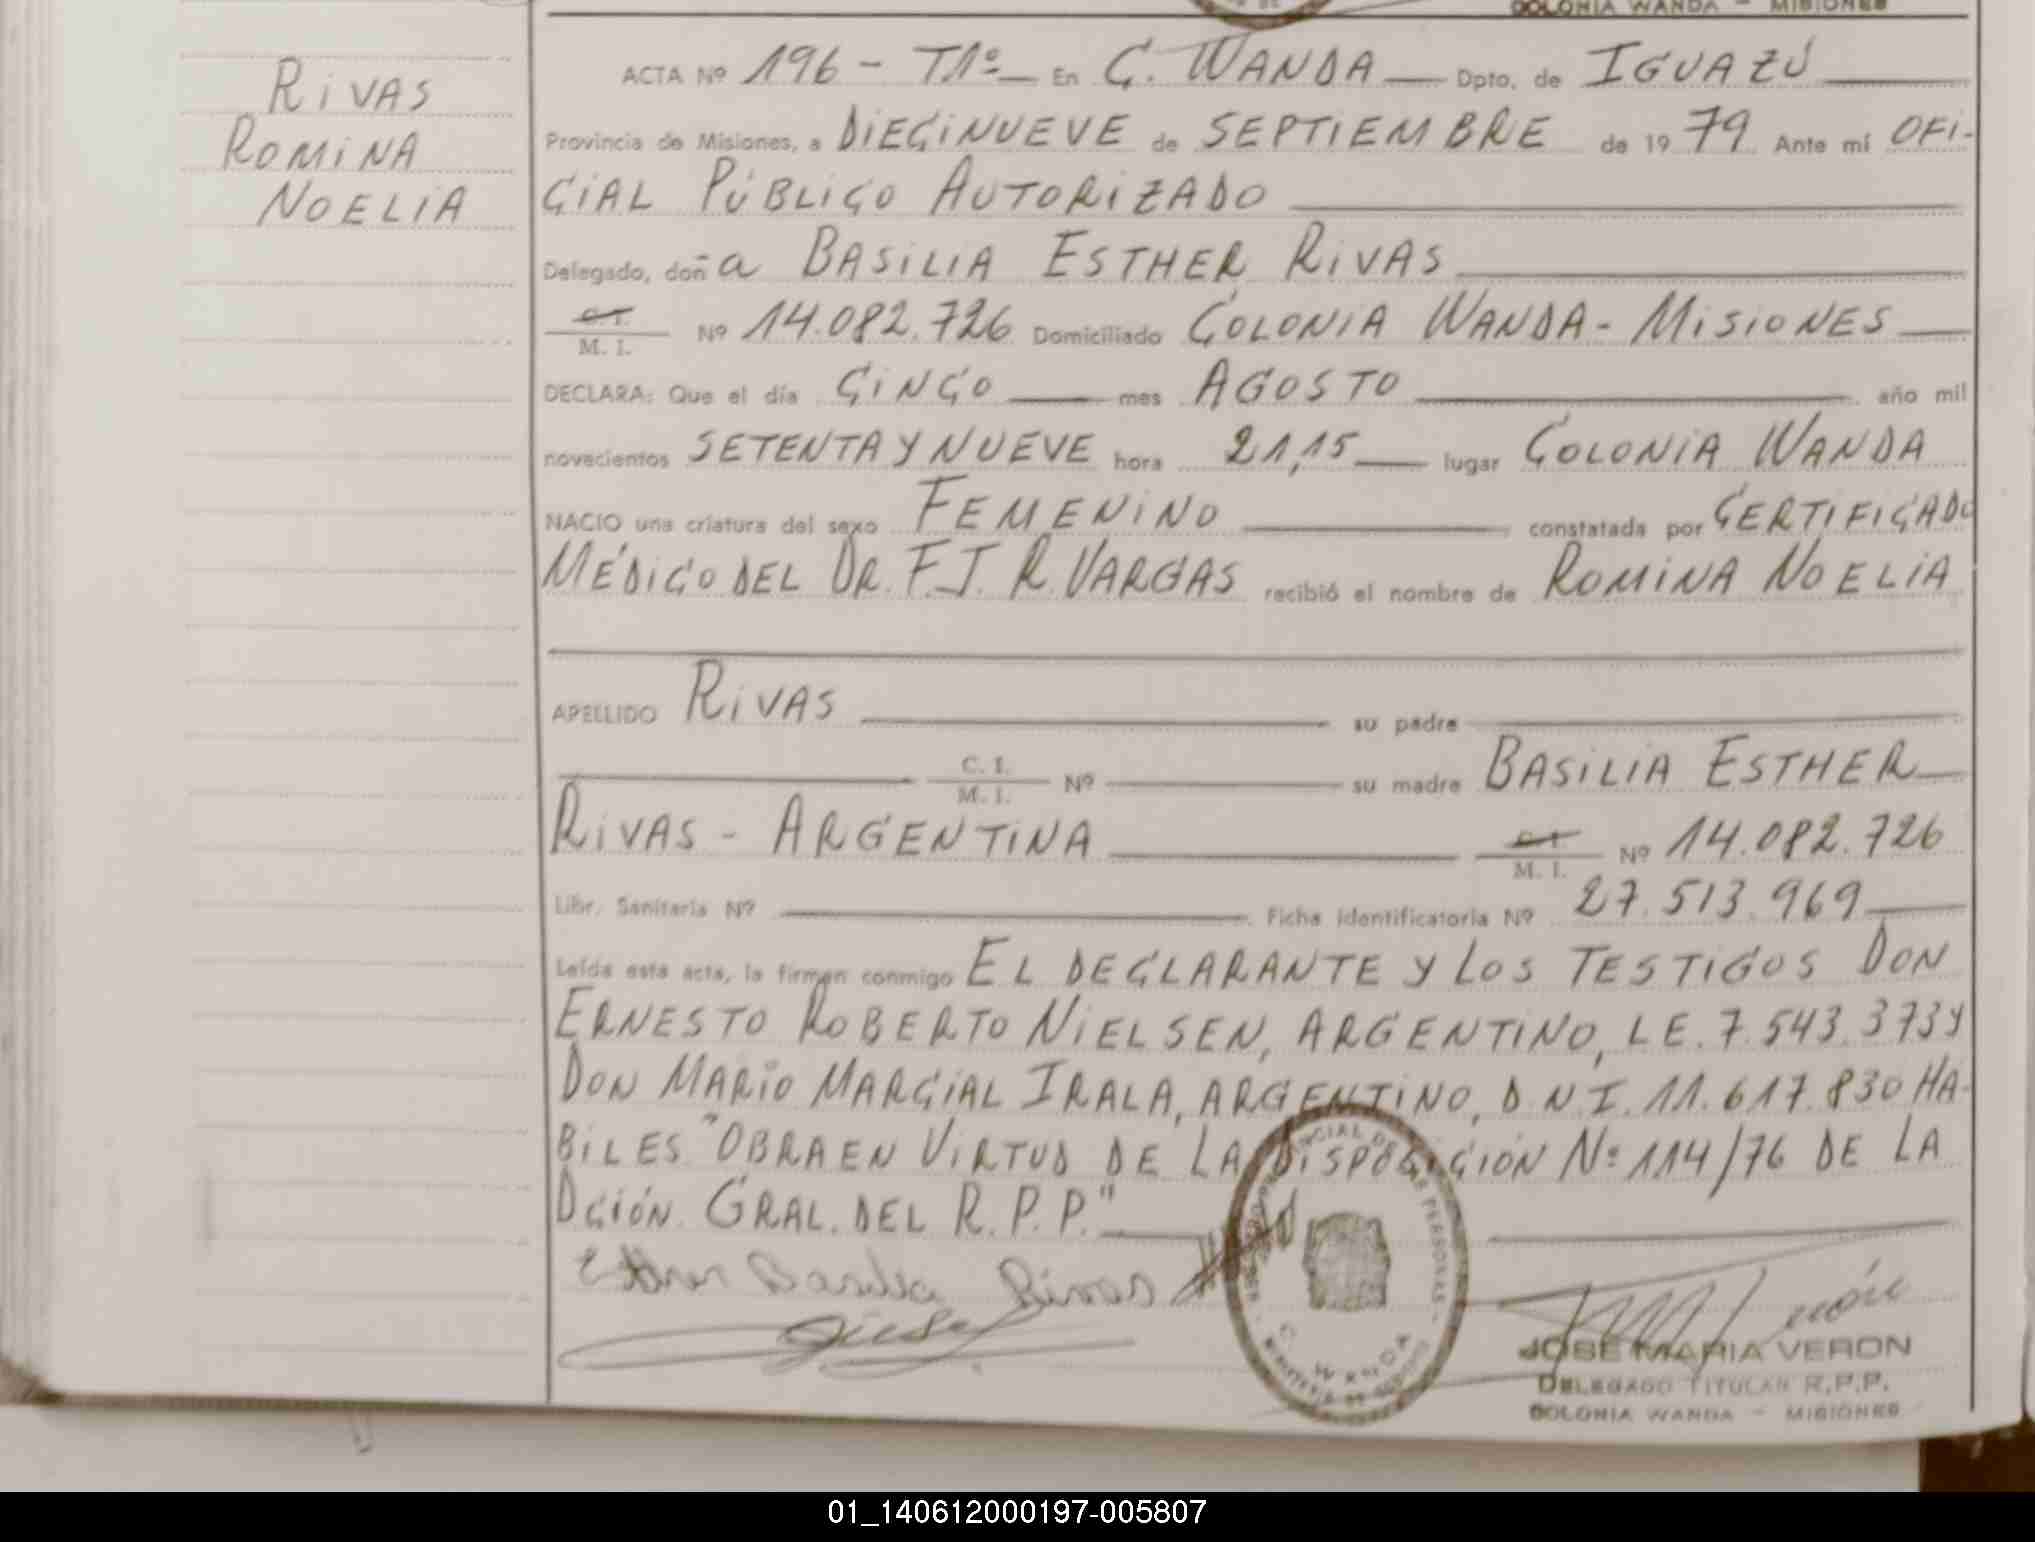 COLONIA WANDA - MISIONES
RIVAS
ROMINA
NOELIA
ACTA Nº 196 - T1º En C. WANDA Dpto. de IGUAZÚ
Provincia de Misiones, a DIECINUEVE de SEPTIEMBRE de 1979 Ante mí OFI-
CIAL PÚBLICO AUTORIZADO
Delegado, doña BASILIA ESTHER RIVAS
C. I.
M. I. Nº 14.082.726 Domiciliado COLONIA WANDA - MISIONES
DECLARA: Que el día CINCO mes AGOSTO año mil
novecientos SETENTA Y NUEVE hora 21,15 lugar COLONIA WANDA
NACIO una criatura del sexo FEMENINO constatada por CERTIFICADO
MÉDICO DEL DR. F.J. R. VARGAS recibió el nombre de ROMINA NOELIA
APELLIDO RIVAS su padre
C. I.
M. I. Nº su madre BASILIA ESTHER
RIVAS - ARGENTINA C. I.
M. I. Nº 14.082.726
Libr. Sanitaria Nº Ficha identificatoria Nº 27.513.969
Leída esta acta, la firman conmigo EL DECLARANTE Y LOS TESTIGOS DON
ERNESTO ROBERTO NIELSEN, ARGENTINO, L.E. 7.543.373 Y
DON MARIO MARCIAL IRALA, ARGENTINO, D.N.I. 11.617.830 HA-
BILES "OBRA EN VIRTUD DE LA DISPOSICIÓN Nº 114/76 DE LA
DCIÓN. GRAL. DEL R.P.P."
Esther Basilia Rivas
JOSE MARIA VERON
DELEGADO TITULAR R.P.P.
COLONIA WANDA - MISIONES
C. WANDA
01_140612000197-005807